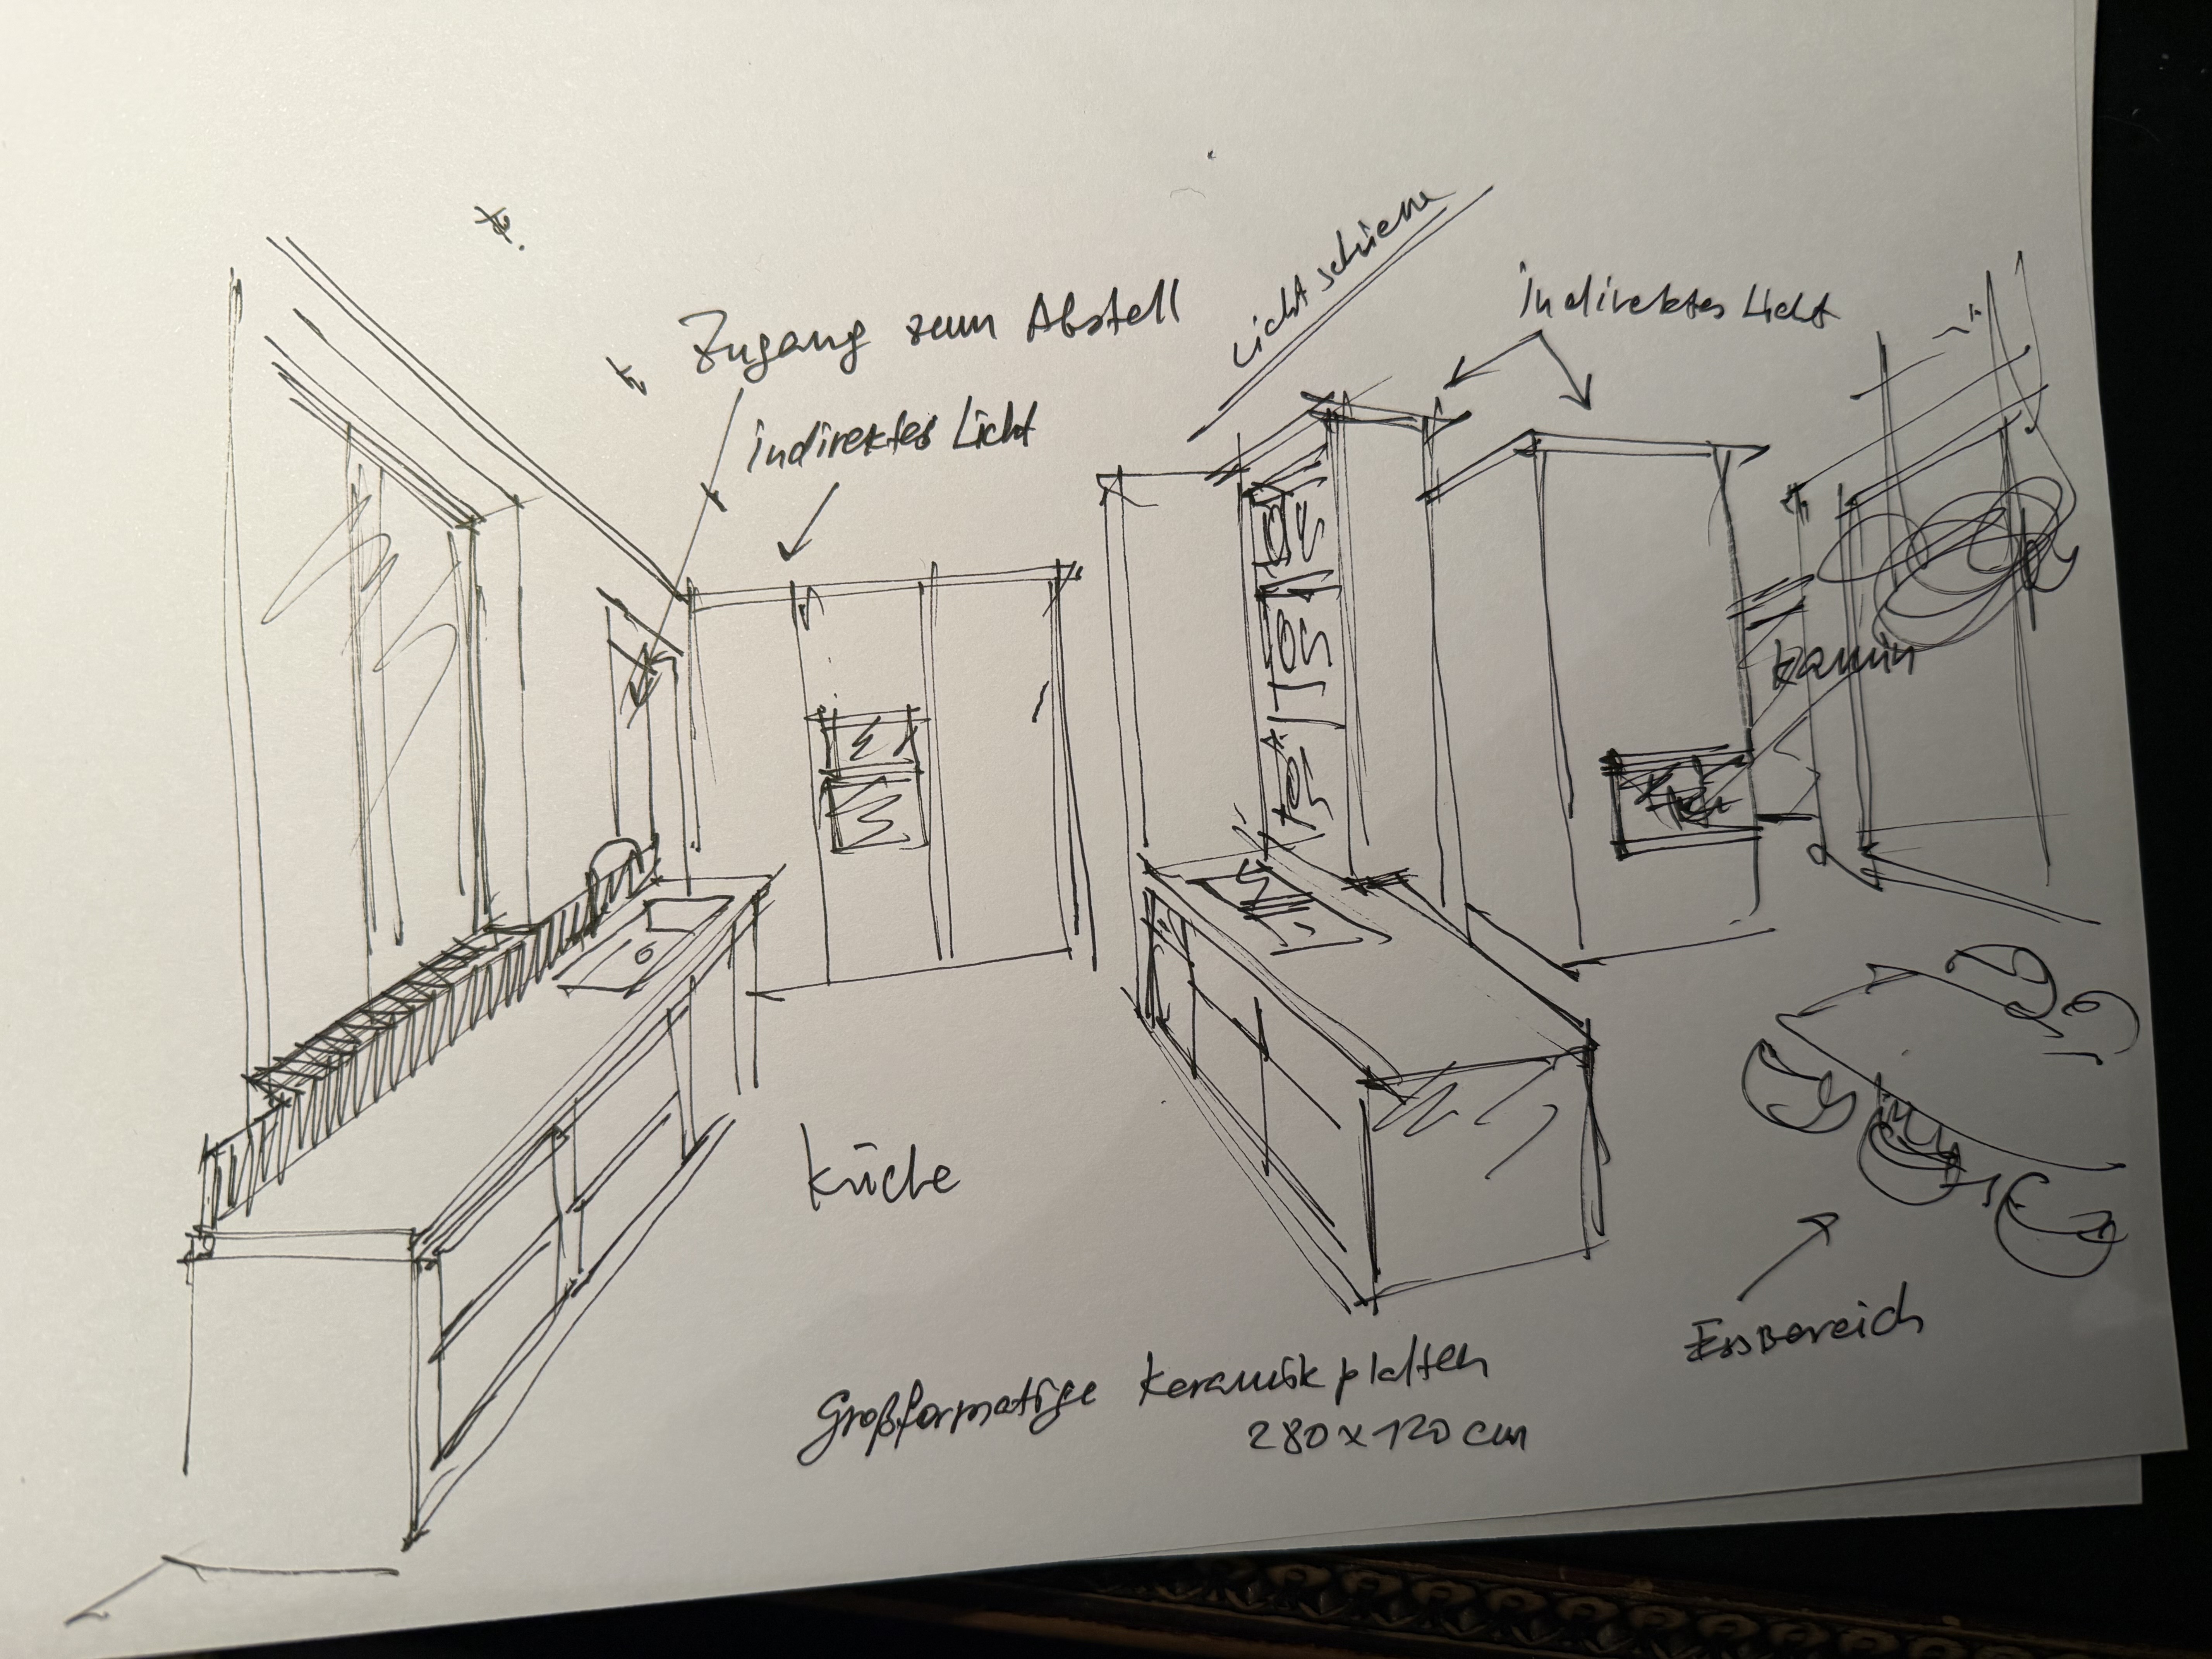 Zugang zum Abstell
indirektes Licht
Lichtschiene
indirektes Licht
Kamin
Küche
Essbereich
Großformatige Keramikplatten
280 x 120 cm